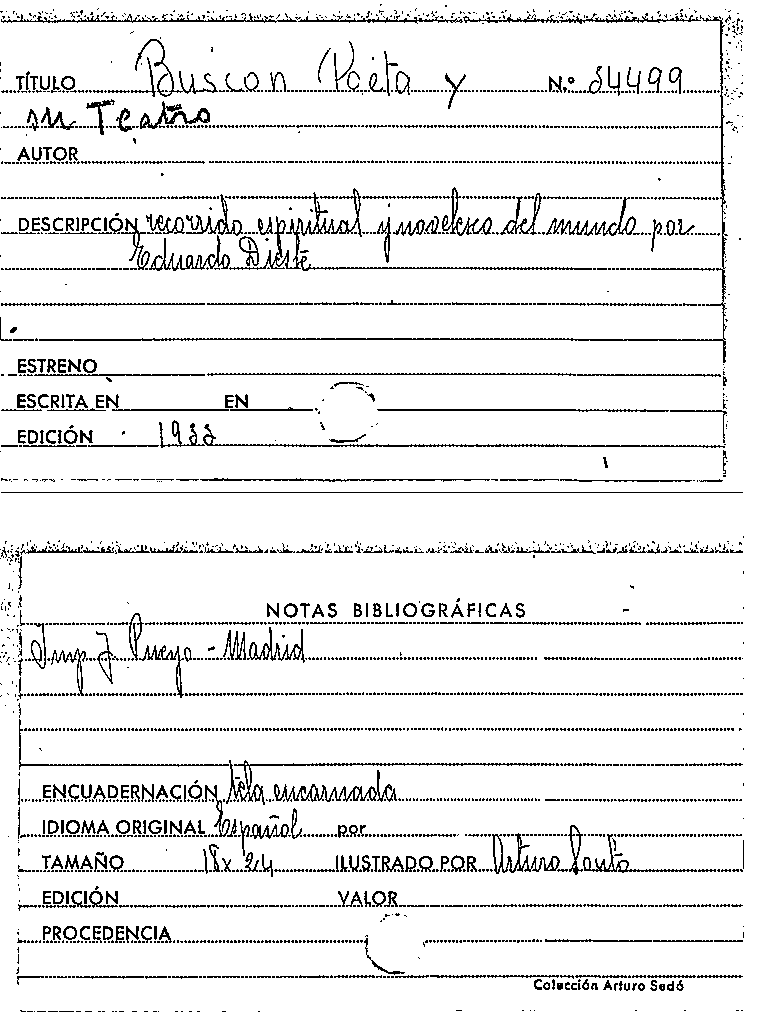 TÍTULO Buscon Poeta y N.º 34499
su Teatro
AUTOR
DESCRIPCIÓN recorrido espiritual y novelesco del mundo por
Eduardo Dieste
ESTRENO
ESCRITA EN EN
EDICIÓN 1933
NOTAS BIBLIOGRÁFICAS
Imp J Pueyo - Madrid
ENCUADERNACIÓN tela encarnada
IDIOMA ORIGINAL Español por
TAMAÑO 18 x 24 ILUSTRADO POR Arturo Souto
EDICIÓN VALOR
PROCEDENCIA
Colección Arturo Sedó